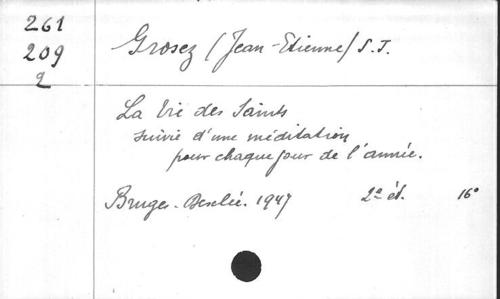 261
209
2
Grosez (Jean-Etienne) S.J.
La Vie des Saints
suivie d'une méditation
pour chaque jour de l'année.
Bruges. Desclée. 1947 2e éd. 16°